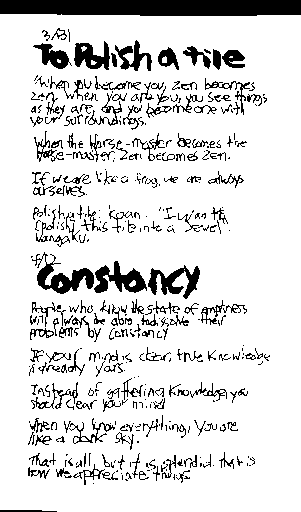 3/31
To Polish a tile
"When you become you, Zen becomes
Zen. When you are you, you see things
as they are, and you become one with
your surroundings.
When the Horse-master becomes the
Horse-master, Zen becomes Zen.
If we are like a frog, we are always
ourselves.
Polish a tile: koan. "I want to
polish this tile into a jewel".
Nangaku.
Constancy
People who know the state of emptiness
will always be able to dissolve their
problems by constancy
If your mind is clear, true knowledge
is already yours.
Instead of gathering knowledge, you
should clear your mind
When you know everything, you are
like a dark sky.
That is all, but it is splendid. that is
how we appreciate things